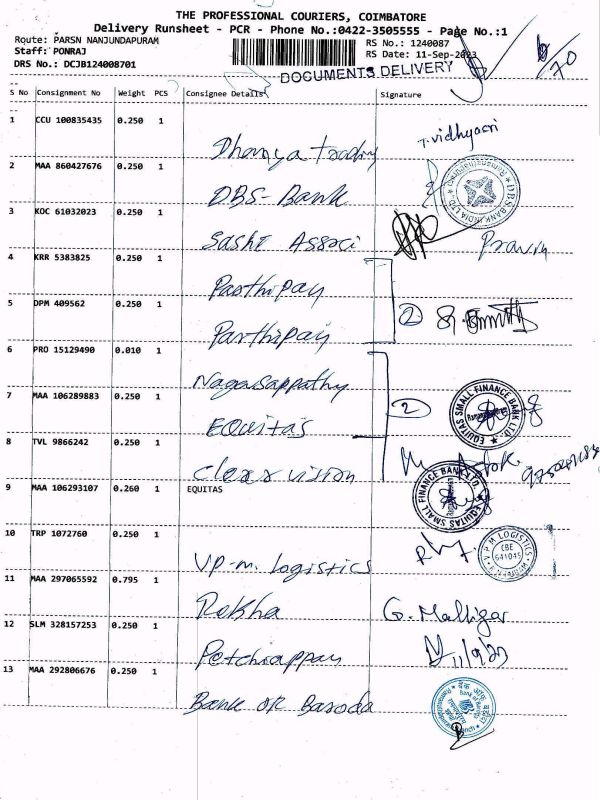 THE PROFESSIONAL COURIERS, COIMBATORE
Delivery Runsheet - PCR - Phone No.:0422-3505555 - Page No.:1
Route: PARSN NANJUNDAPURAM
RS No.: 1240087
Staff: PONRAJ
RS Date: 11-Sep-2023
DRS No.: DCJB124008701
DOCUMENTS DELIVERY
S No Consignment No Weight PCS Consignee Details Signature
1 CCU 100835435 0.250 1
Dhanya Trading T. Vidhyasri
2 MAA 860427676 0.250 1
DBS-Bank
DBS BANK INDIA LTD.
3 KOC 61032023 0.250 1
Sashi Associ
4 KRR 5383825 0.250 1
Parthipan
5 DPM 409562 0.250 1
2
Parthipan
6 PRO 15129490 0.010 1
Nagasappathy
7 MAA 106289883 0.250 1
2
EQUITAS SMALL FINANCE BANK LTD.
Equitas
8 TVL 9866242 0.250 1
Clear vision Ashok
9 MAA 106293107 0.260 1 EQUITAS
EQUITAS SMALL FINANCE BANK LTD.
10 TRP 1072760 0.250 1
V.P.M LOGISTICS
CBE
641045
VP-m. logistics
11 MAA 297065592 0.795 1
Rekha
12 SLM 328157253 0.250 1
Petchiappan 11/9/23
13 MAA 292806676 0.250 1
Bank of Baroda